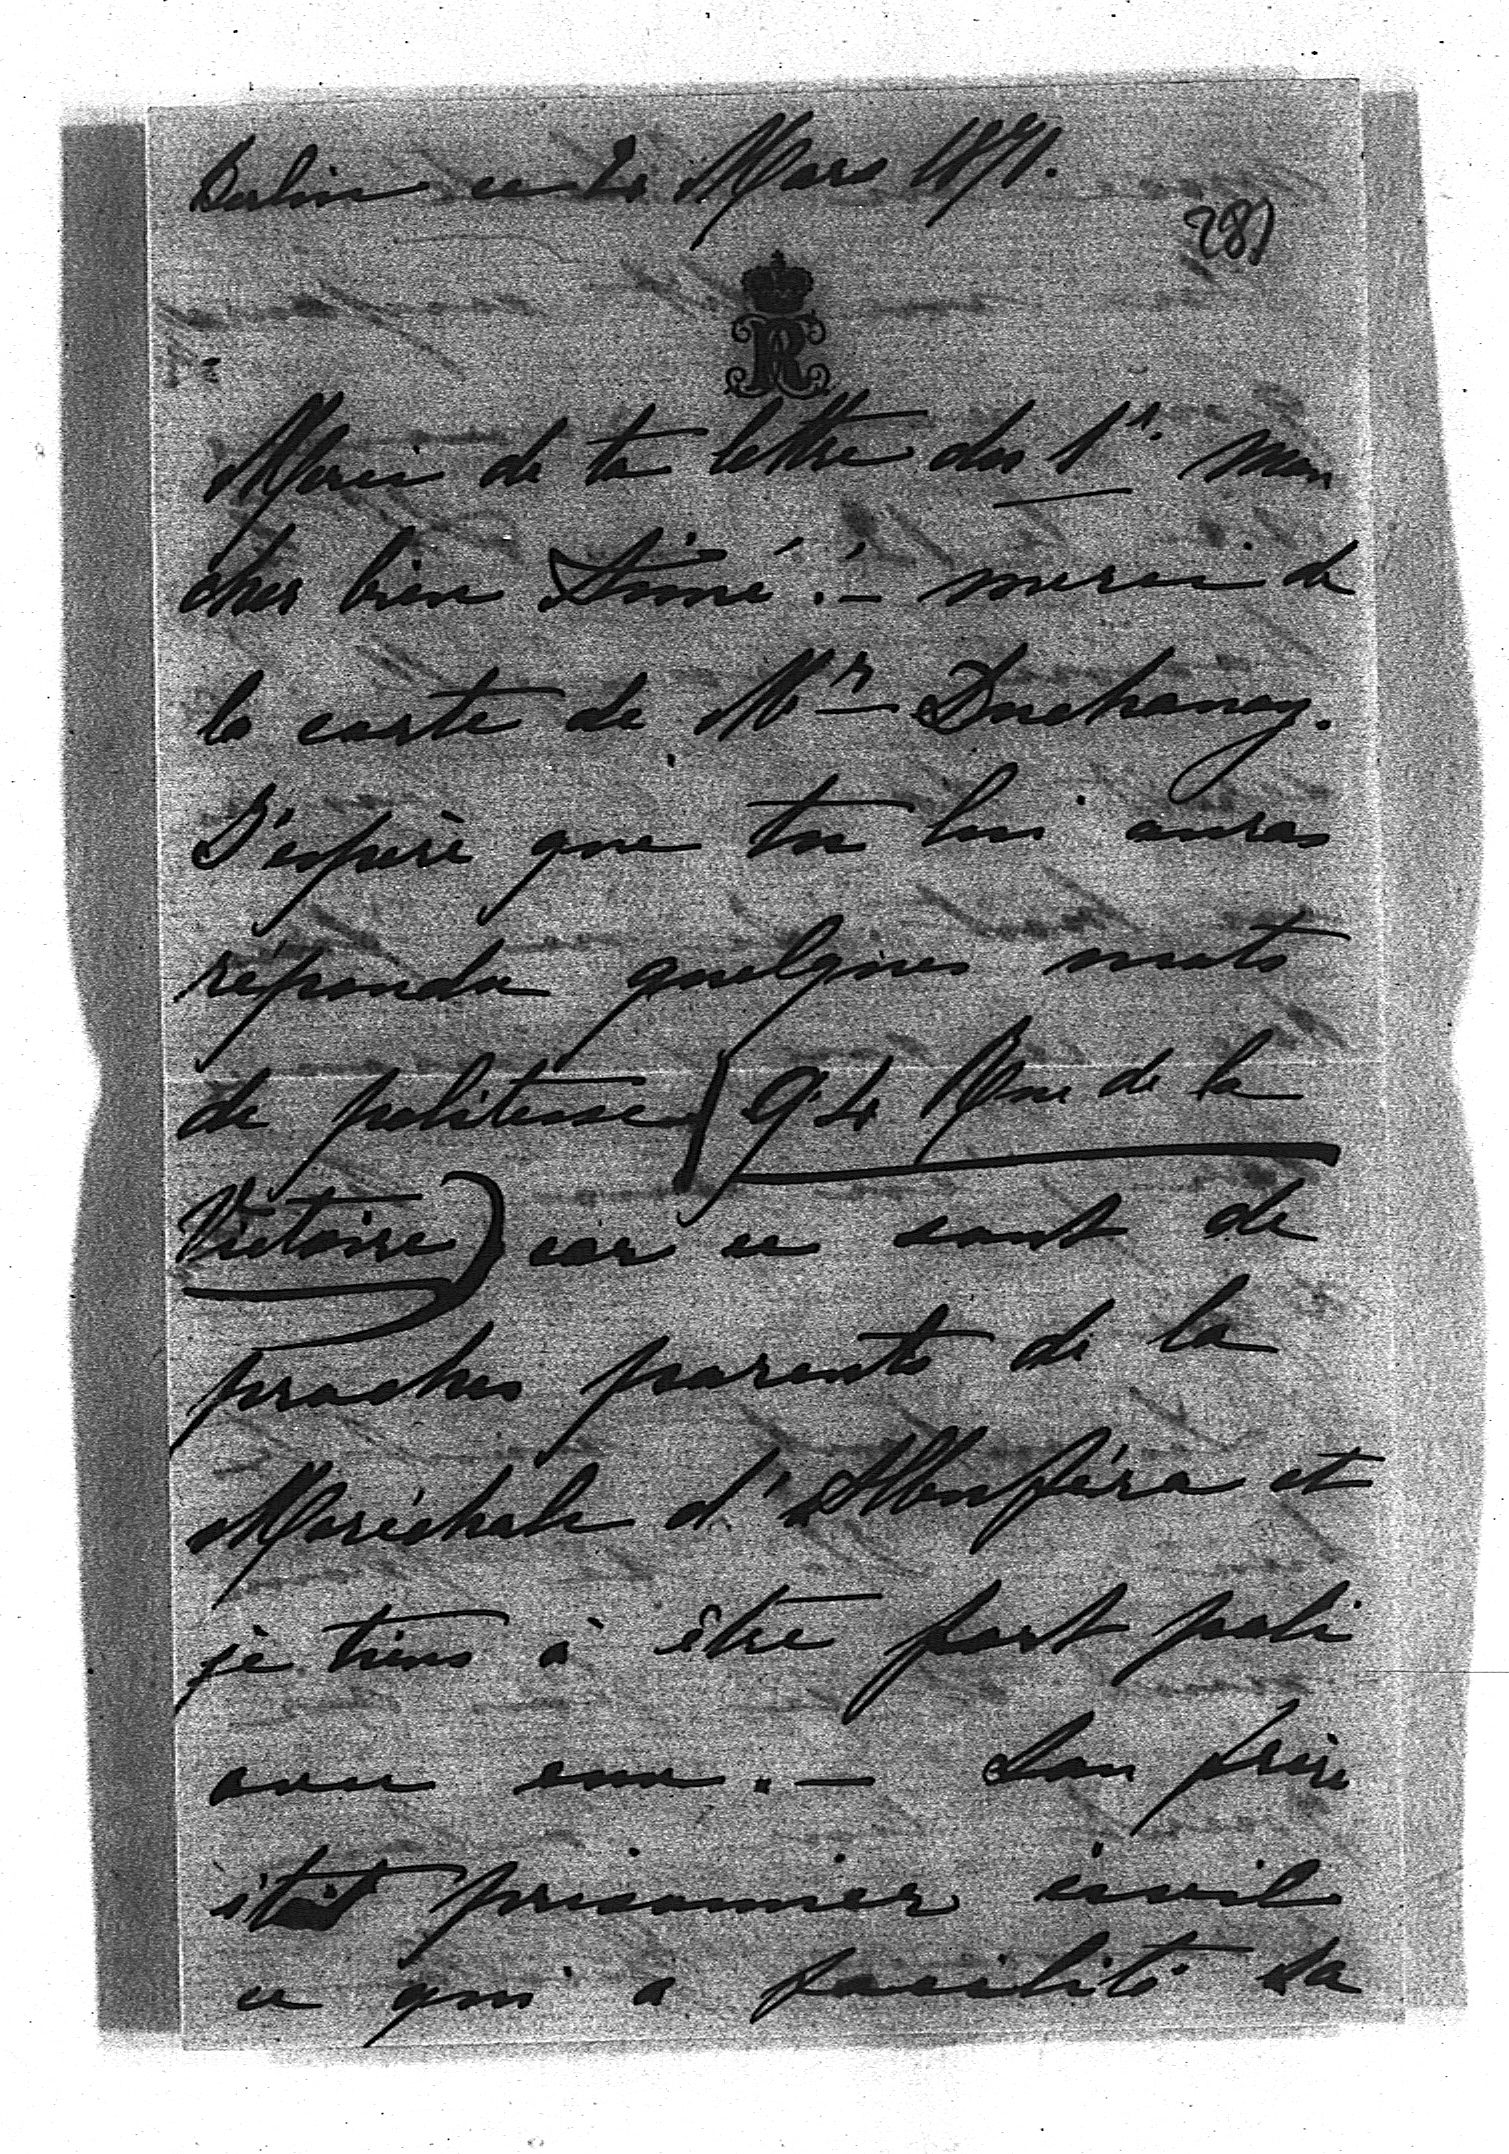 Berlin ce 4 Mars 1871.
287
R
Merci de ta lettre du 1er. mon
cher bien Aimé.— merci de
la carte de Mr Duchanoy.
J'espère que tu lui auras
répondu quelques mots
de politesse (94 Rue de la
Victoire) car ce sont de
proches parents de la
Maréchale d'Albuféra et
je tiens à être fort poli
avec eux.— Son frère
était prisonnier civil
ce qui a facilité sa